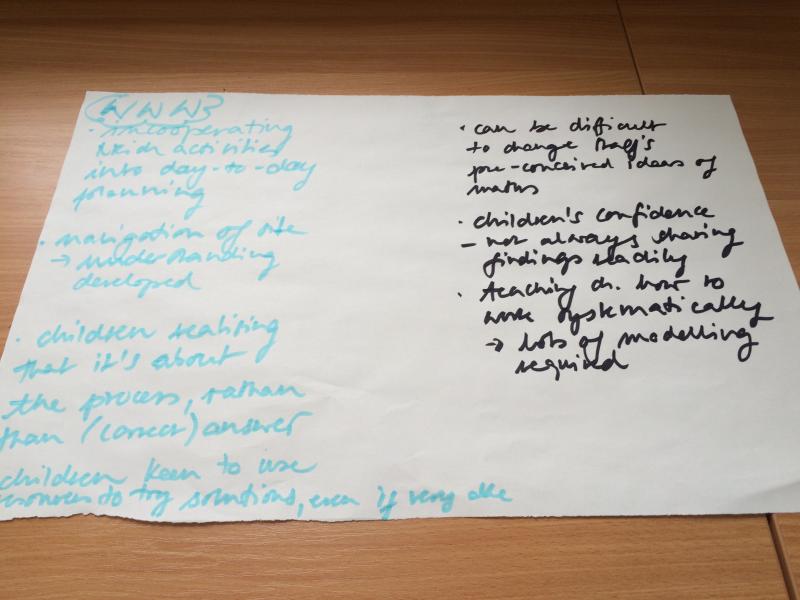 WWW?
· incooperating
Nrich activities
into day-to-day
planning
· navigation of site
→ understanding
developed
· children realising
that it's about
the process, rather
than (correct) answer
children keen to use
resources to try solutions, even if very able
· can be difficult
to change staff's
pre-conceived ideas of
maths
· children's confidence
– not always sharing
findings readily
· teaching ch. how to
work systematically
→ lots of modelling
required